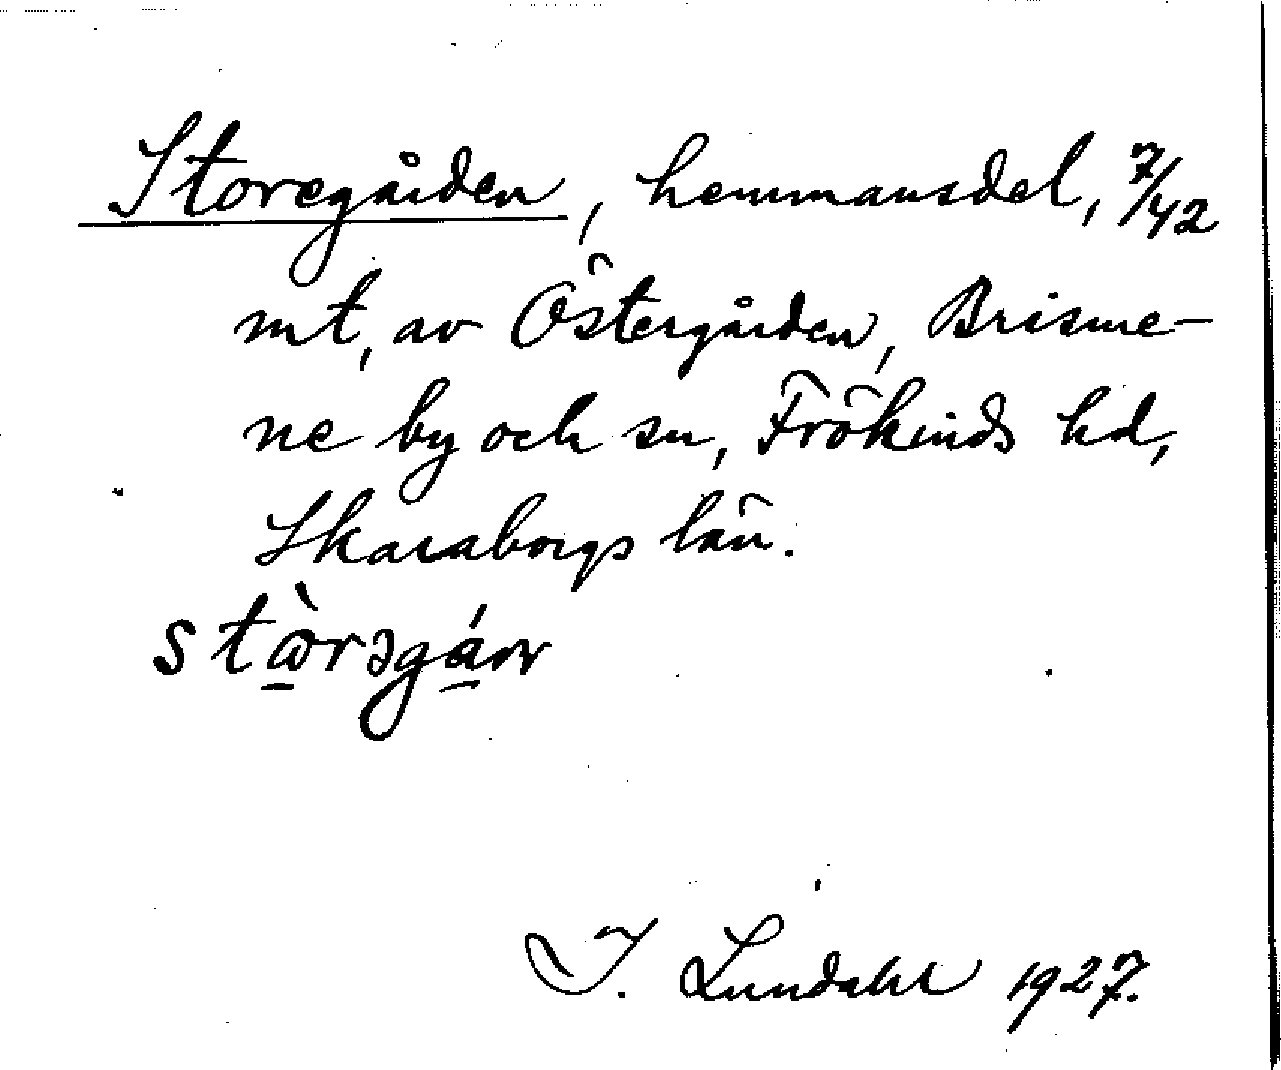 Storegården, hemmansdel, 7/42
mt, av Östergården, Brisme-
ne by och sn, Frökinds hd,
Skaraborgs län.
I. Lundahl 1927.